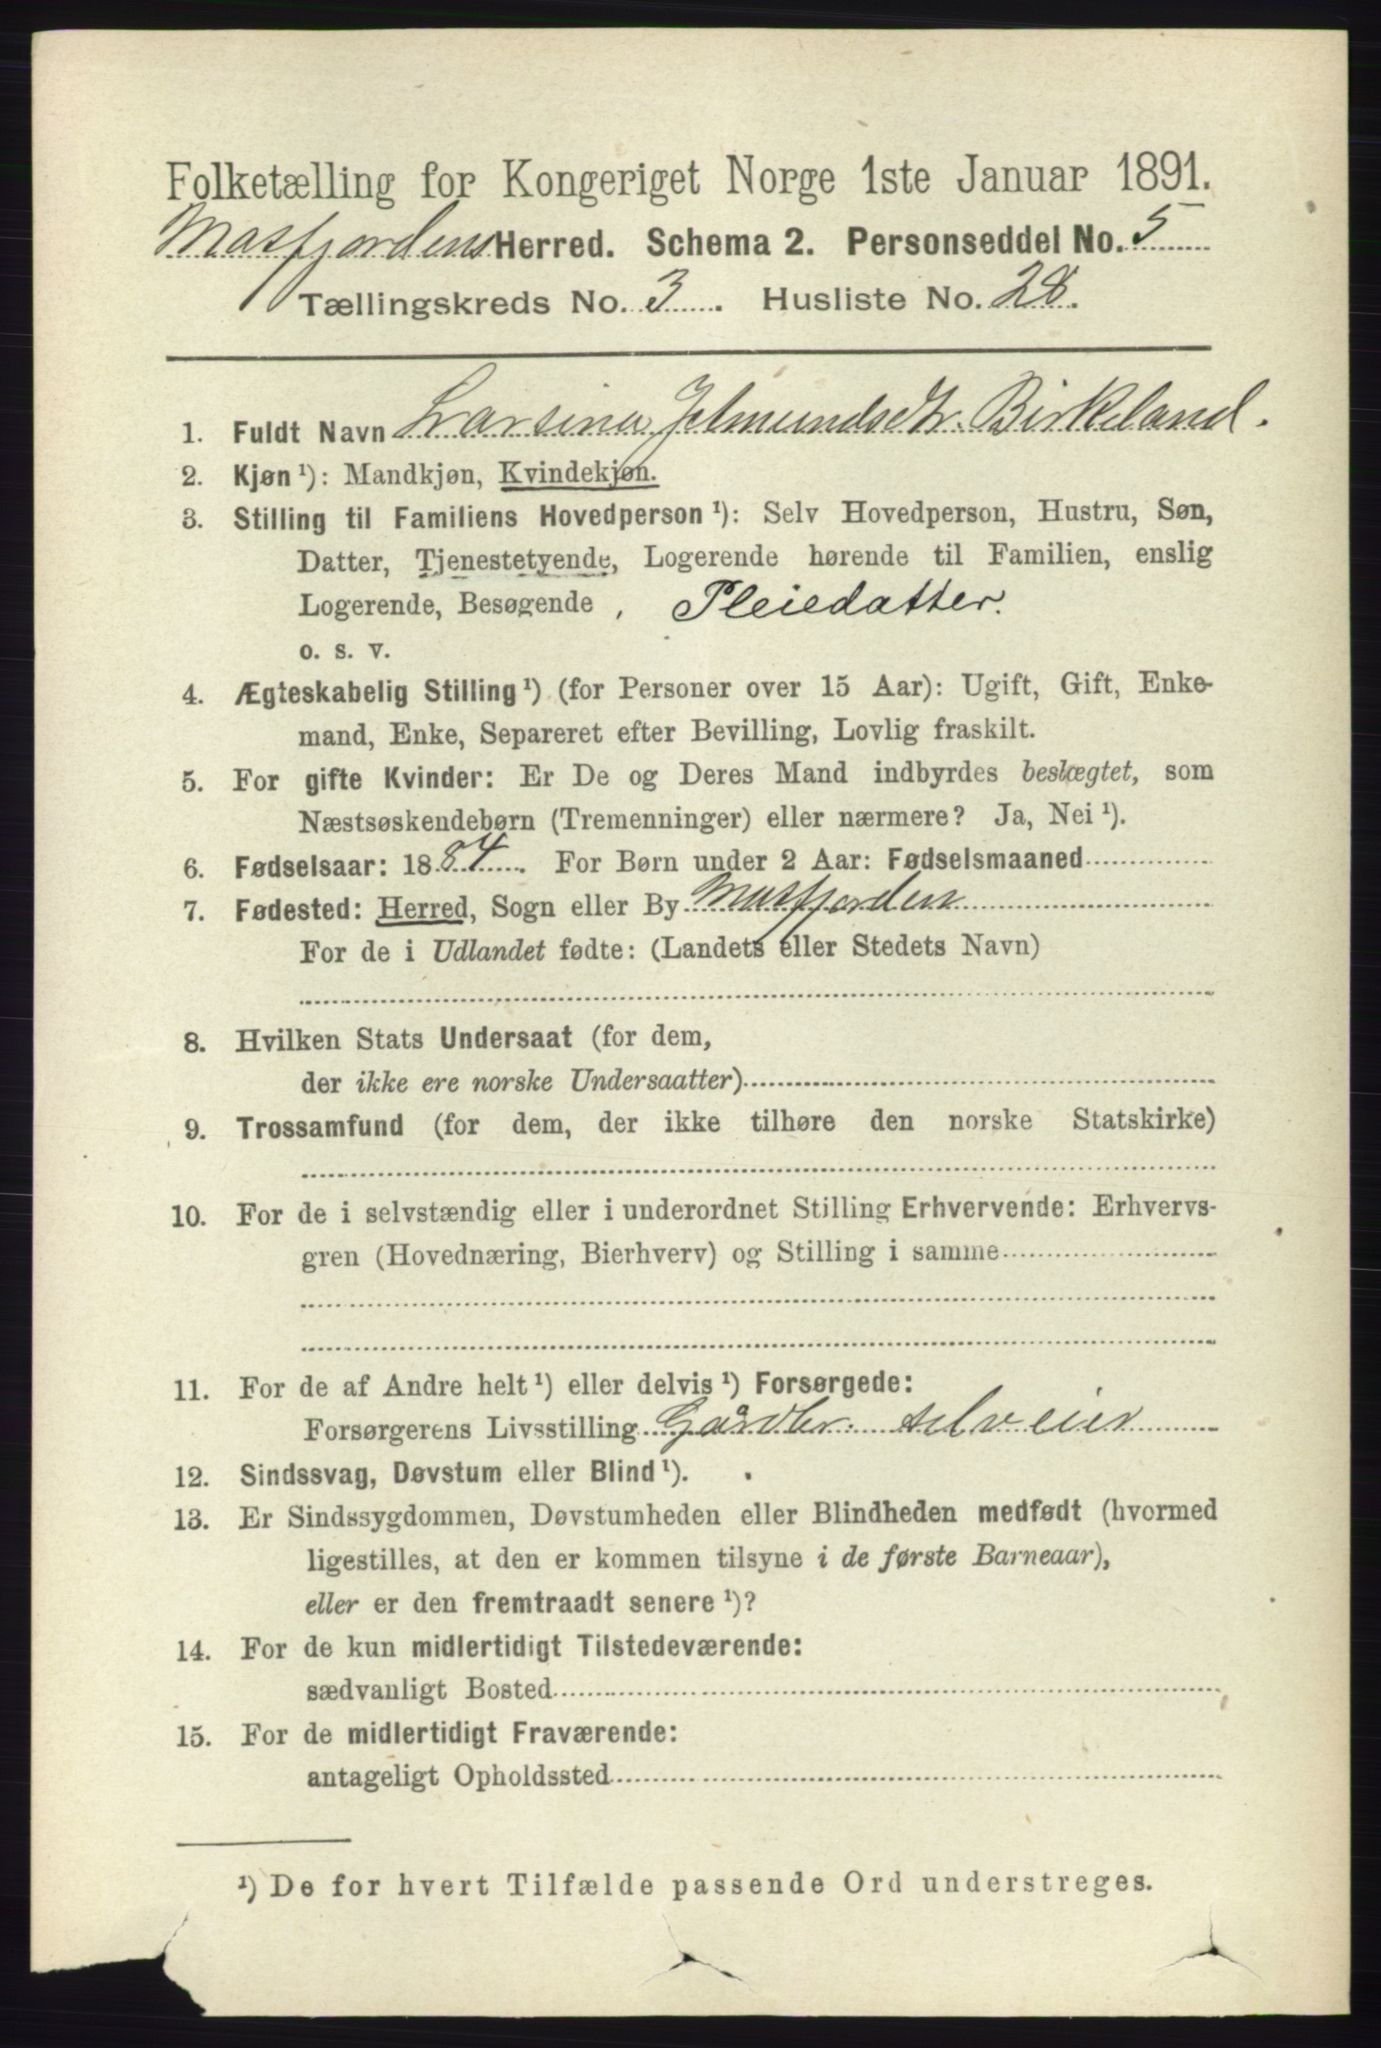 Folketælling for Kongeriget Norge 1ste Januar 1891.
Masfjordens Herred. Schema 2. Personseddel No. 5
Tællingskreds No. 3. Husliste No. 28.
1. Fuldt Navn Larsina Jelmundsdtr. Birkeland.
2. Kjøn ¹): Mandkjøn, Kvindekjøn.
3. Stilling til Familiens Hovedperson ¹): Selv Hovedperson, Hustru, Søn,
Datter, Tjenestetyende, Logerende hørende til Familien, enslig
Logerende, Besøgende, Pleiedatter.
o. s. v.
4. Ægteskabelig Stilling ¹) (for Personer over 15 Aar): Ugift, Gift, Enke-
mand, Enke, Separeret efter Bevilling, Lovlig fraskilt.
5. For gifte Kvinder: Er De og Deres Mand indbyrdes beslægtet, som
Næstsøskendebørn (Tremenninger) eller nærmere? Ja, Nei ¹).
6. Fødselsaar: 1884. For Børn under 2 Aar: Fødselsmaaned
7. Fødested: Herred, Sogn eller By Masfjorden
For de i Udlandet fødte: (Landets eller Stedets Navn)
8. Hvilken Stats Undersaat (for dem,
der ikke ere norske Undersaatter)
9. Trossamfund (for dem, der ikke tilhøre den norske Statskirke)
10. For de i selvstændig eller i underordnet Stilling Erhvervende: Erhvervs-
gren (Hovednæring, Bierhverv) og Stilling i samme
11. For de af Andre helt ¹) eller delvis ¹) Forsørgede:
Forsørgerens Livsstilling Gårdbr. selveier
12. Sindssvag, Døvstum eller Blind ¹).
13. Er Sindssygdommen, Døvstumheden eller Blindheden medfødt (hvormed
ligestilles, at den er kommen tilsyne i de første Barneaar),
eller er den fremtraadt senere ¹)?
14. For de kun midlertidigt Tilstedeværende:
sædvanligt Bosted
15. For de midlertidigt Fraværende:
antageligt Opholdssted
¹) De for hvert Tilfælde passende Ord understreges.